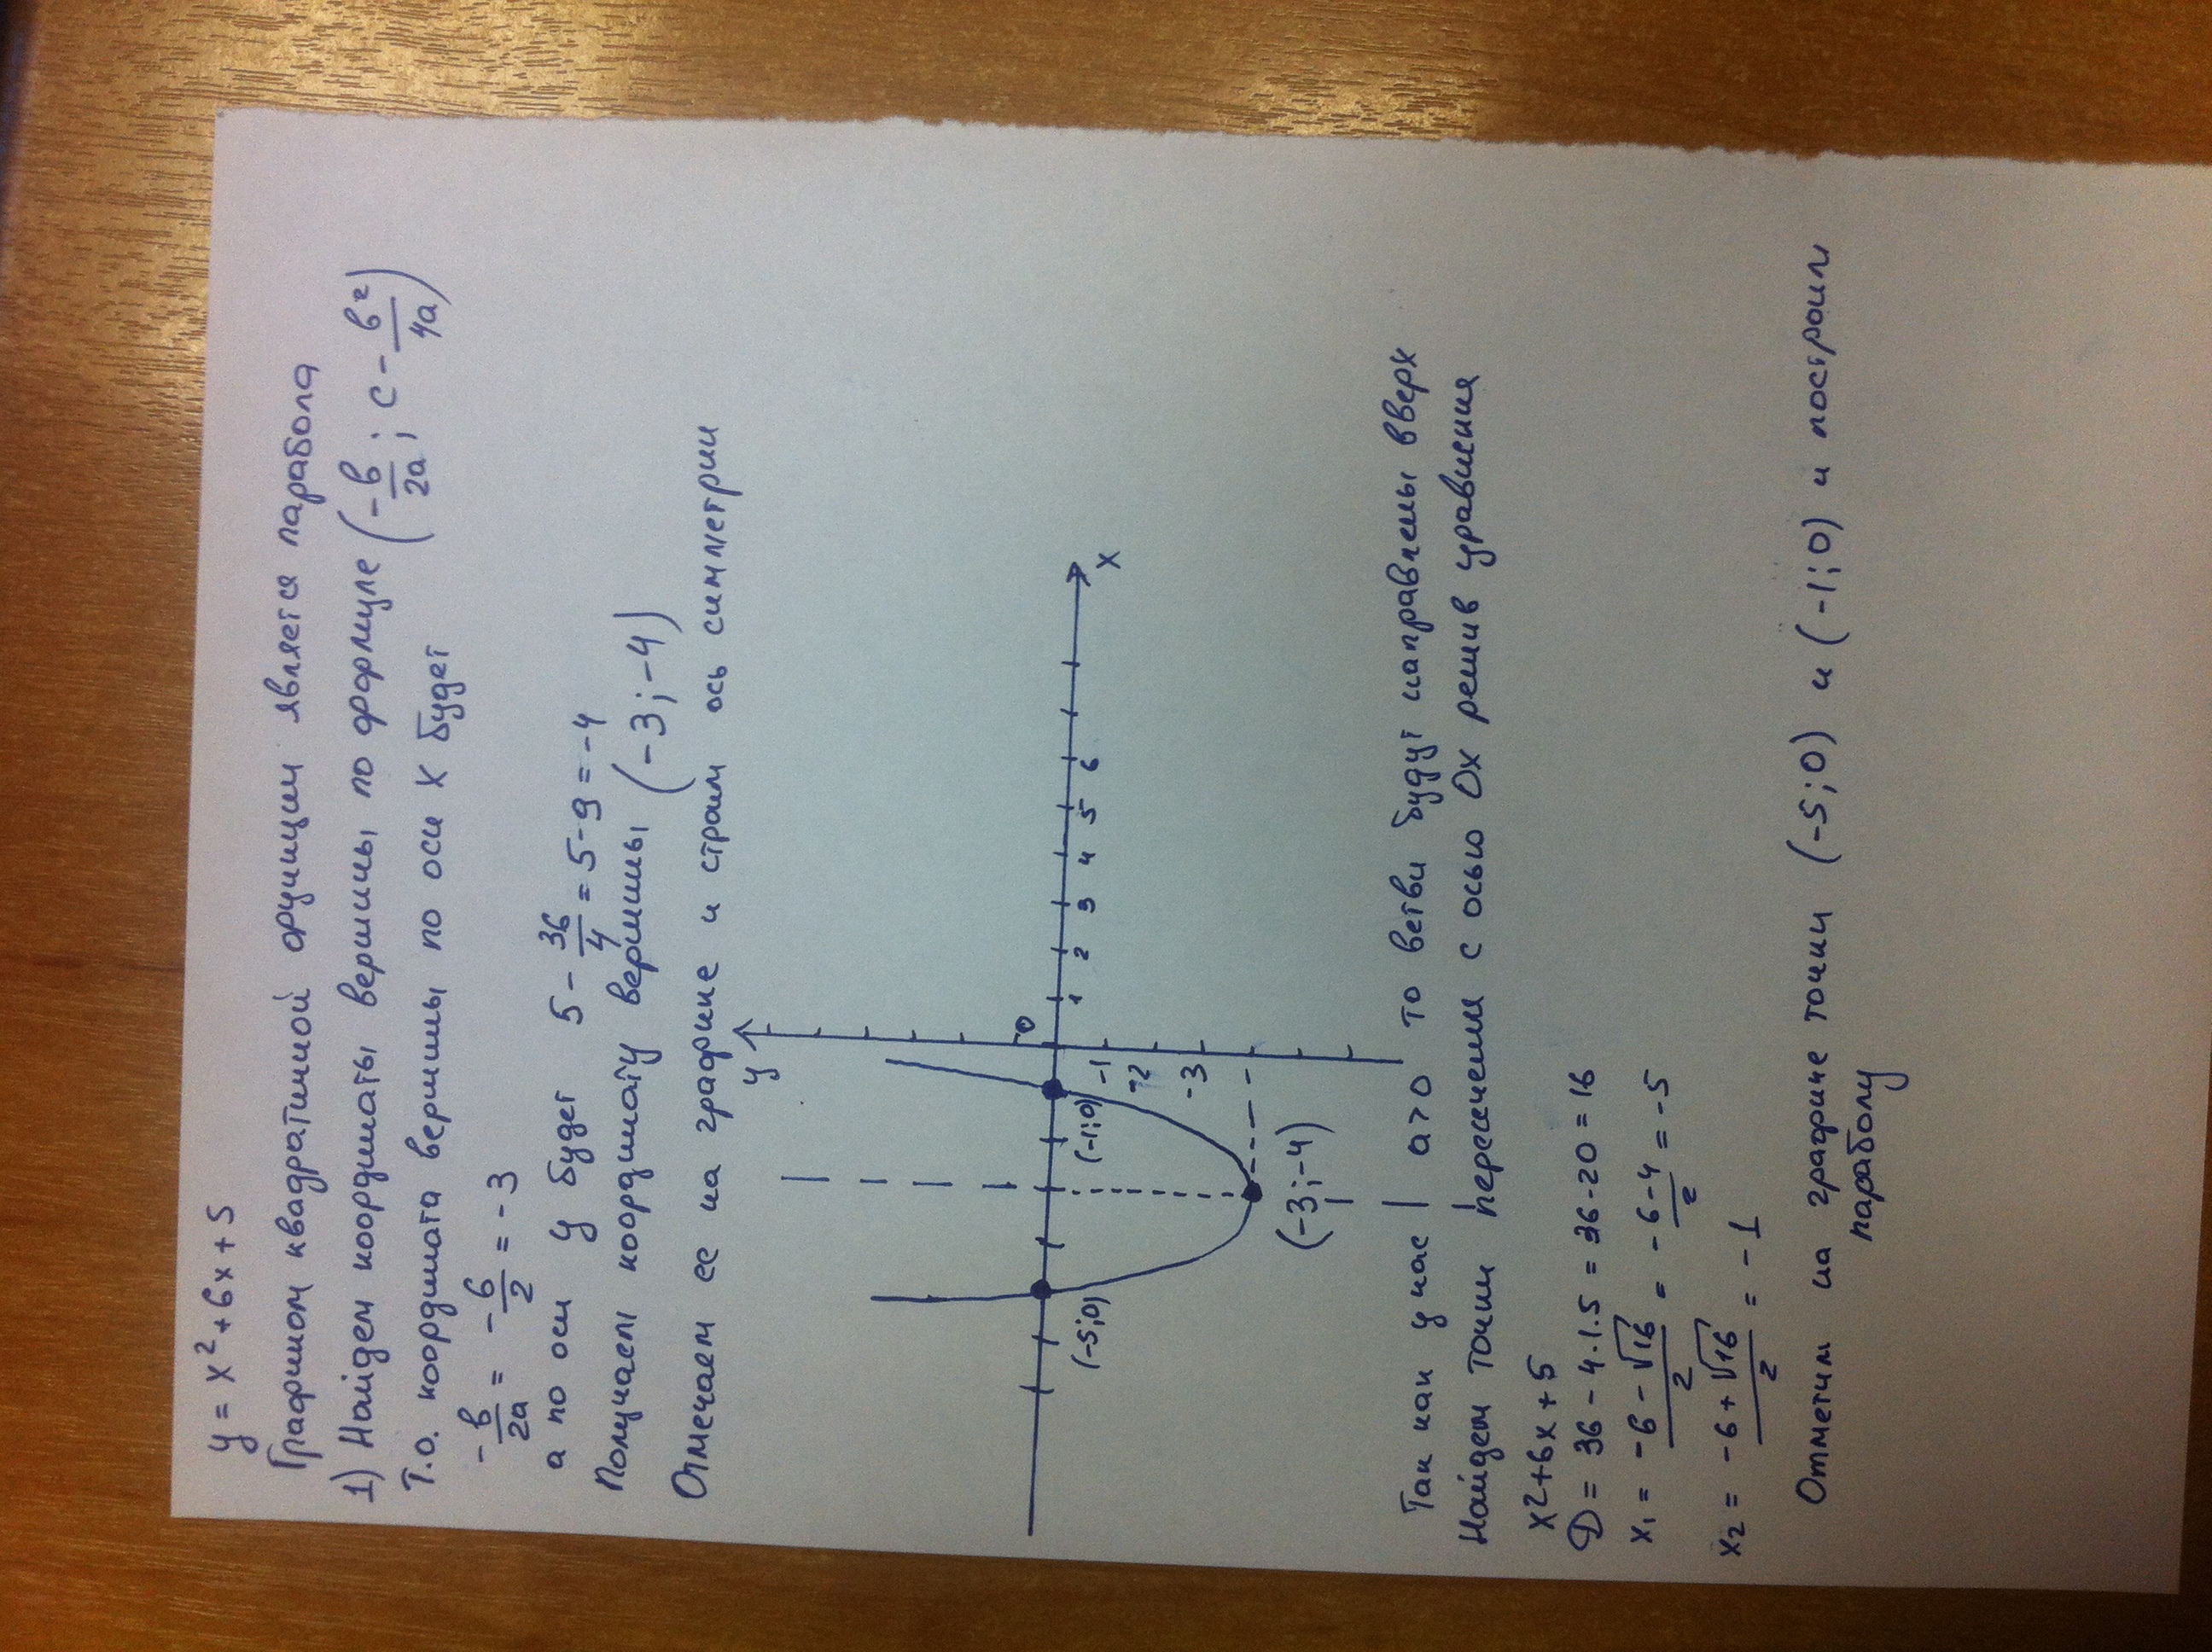 y = x² + 6x + 5
Графиком квадратичной функции является парабола
1) Найдем координаты вершины по формуле (-в/2а; с - в²/4а)
Т.о. координата вершины по оси х будет
-в/2а = -6/2 = -3
а по оси у будет 5 - 36/4 = 5-9 = -4
Получаем координату вершины (-3; -4)
Отмечаем ее на графике и строим ось симметрии
y
0
1 2 3 4 5 6
x
-1
-2
-3
(-5;0)
(-1;0)
(-3;-4)
Так как у нас а>0 то ветви будут направлены вверх
Найдем точки пересечения с осью Ох решив уравнения
x2+6x+5
D = 36 - 4.1.5 = 36-20 = 16
x₁ = -6-√16/2 = -6-4/2 = -5
x₂ = -6+√16/2 = -1
Отметим на графике точки (-5;0) и (-1;0) и построим
параболу